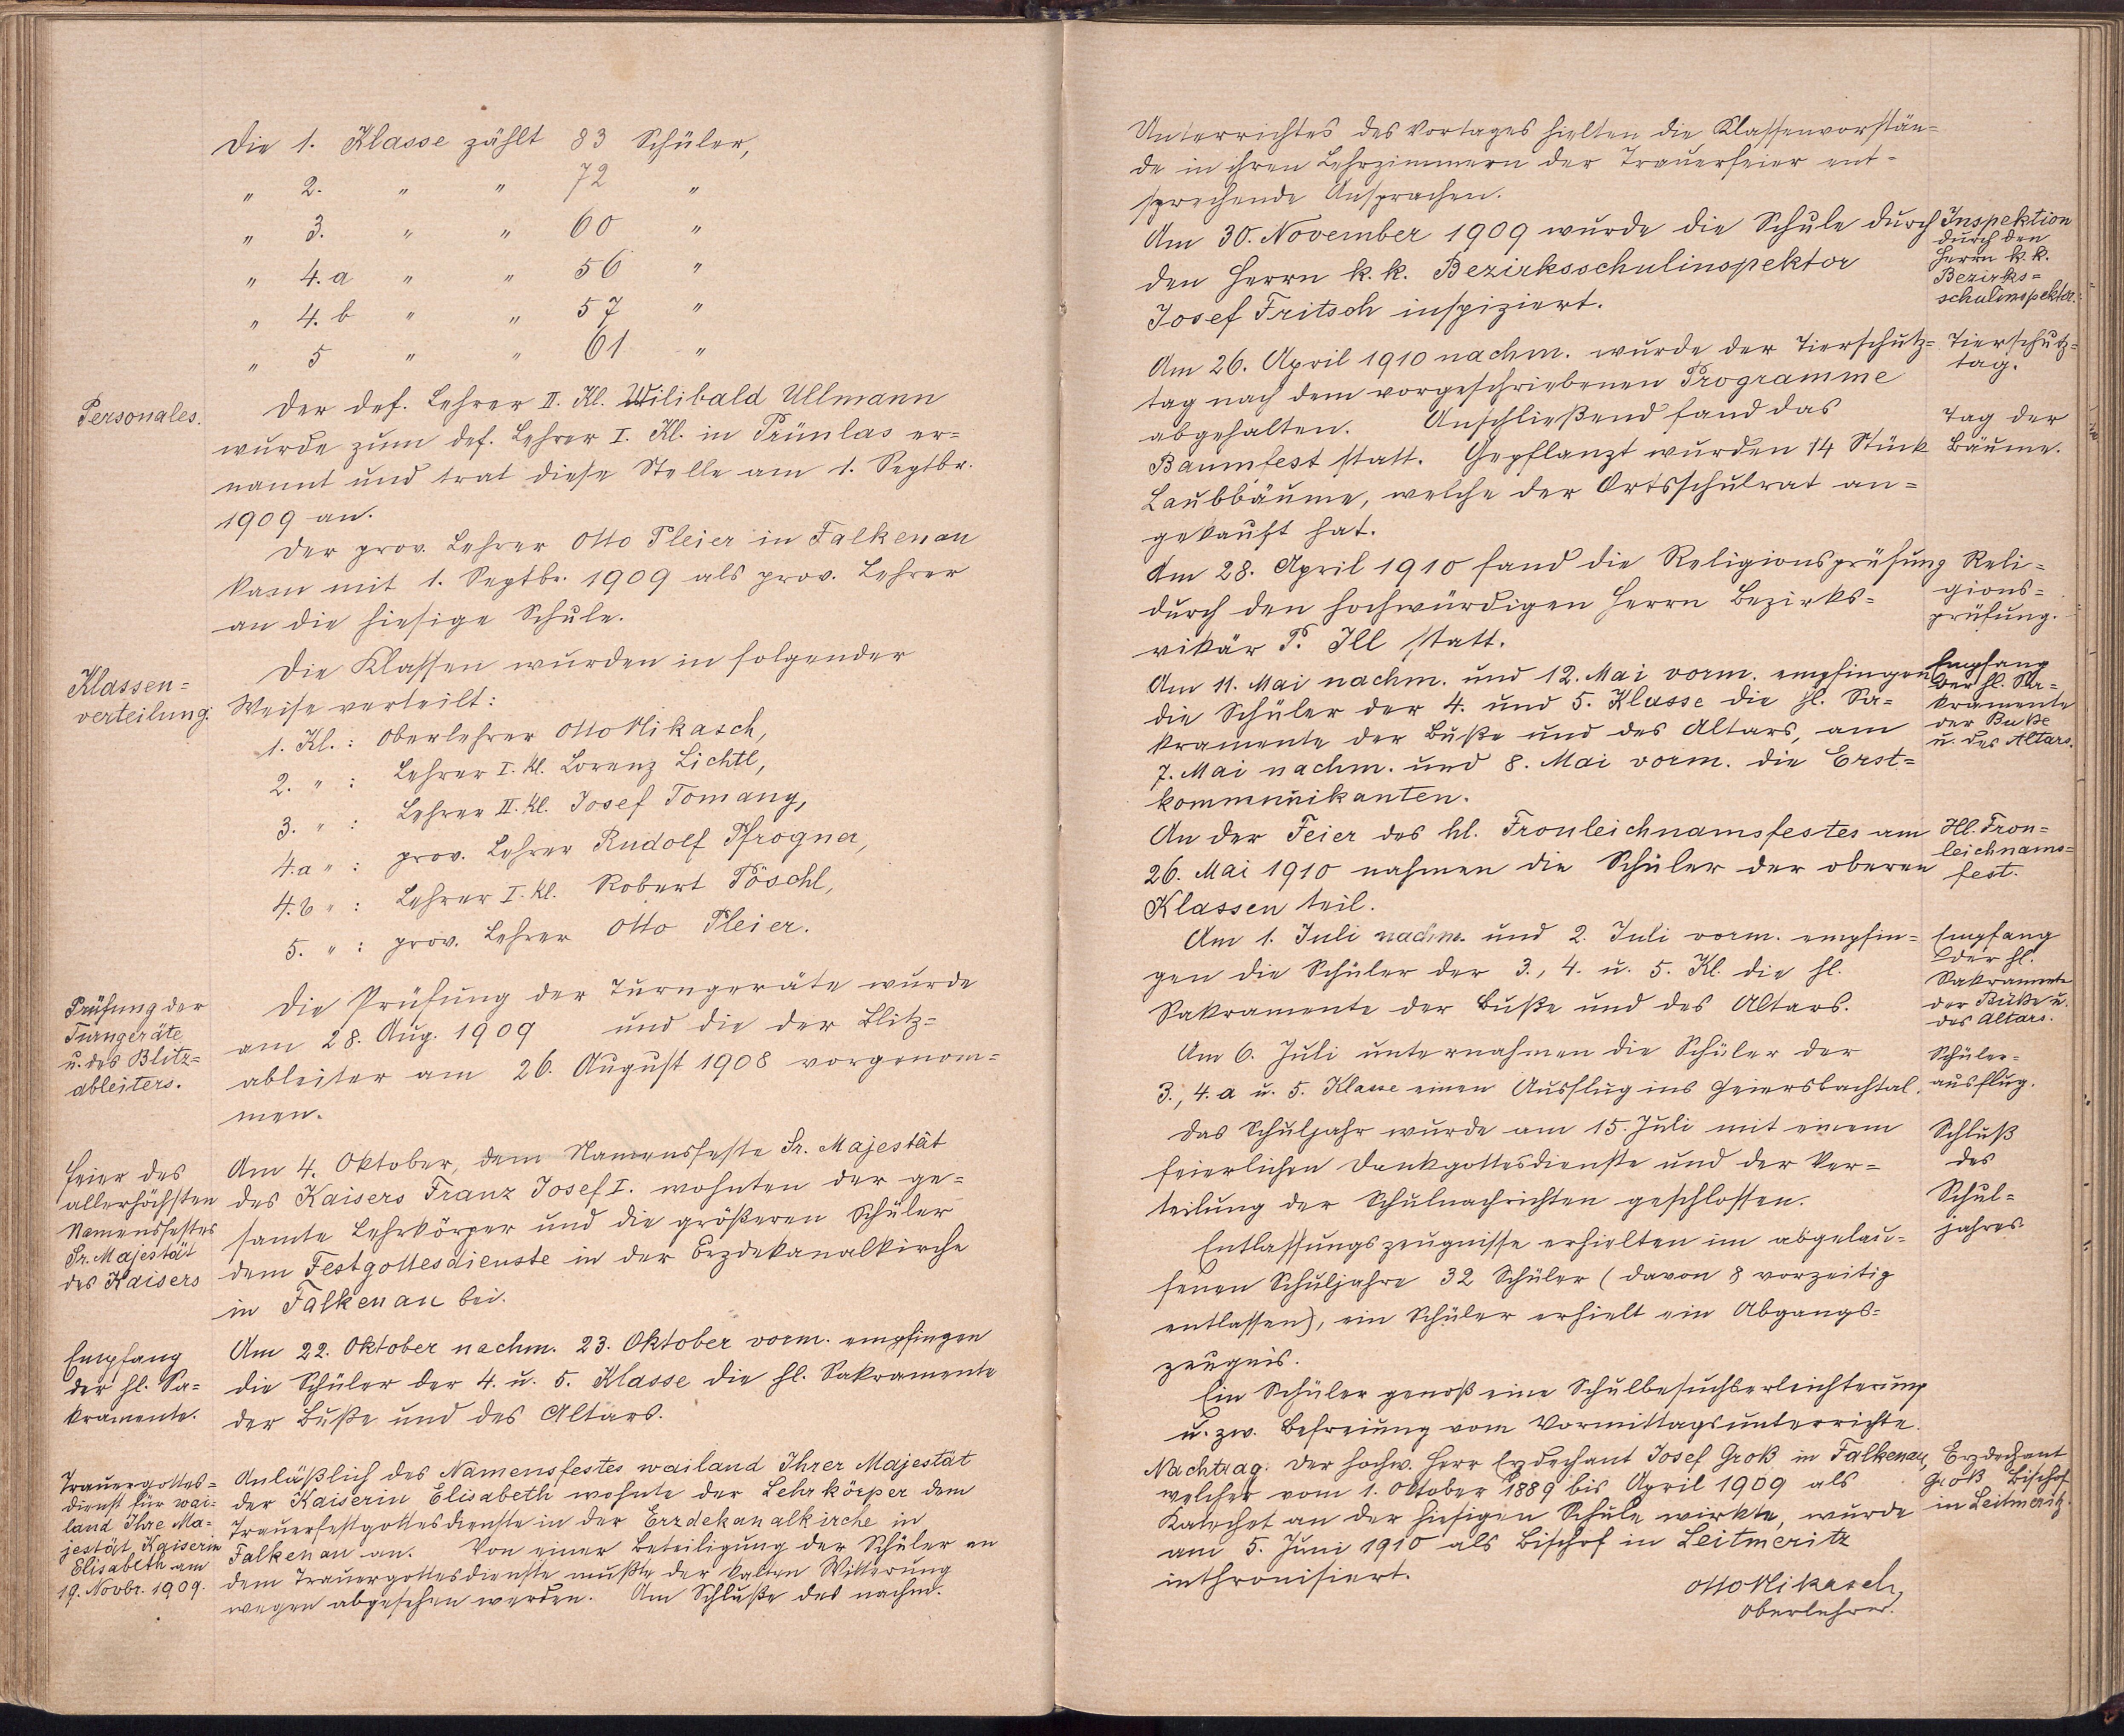 Die 1. Klasse zählt 83 Schüler,
" 2. " " 72 "
" 3. " " 60 "
" 4. a " " 56 "
" 4. b " " 57 "
" 5 " " 61 "
Personales.
Der def. Lehrer II. Kl. Wilibald Ullmann
wurde zum def. Lehrer I. Kl. in Prünlas er=
nannt und trat diese Stelle am 1. Septbr.
1909 an.
Der prov. Lehrer Otto Pleier in Falkenau
kam mit 1. Septbr. 1909 als prov. Lehrer
an die hiesige Schule.
Klassen=
verteilung.
Die Klassen wurden in folgender
Weise verteilt:
1. Kl.: Oberlehrer Otto Mikasch,
2. " : Lehrer I. Kl. Lorenz Lichtl,
3. " : Lehrer II. Kl. Josef Tomany,
4. a " : prov. Lehrer Rudolf Pfrogner,
4. b " : Lehrer I. Kl. Robert Pöschl,
5. " : prov. Lehrer Otto Pleier.
Prüfung der
Turngeräte
u. des Blitz=
ableiters.
Die Prüfung der Turngeräte wurde
am 28. Aug. 1909 und die der Blitz=
ableiter am 26. August 1908 vorgenom=
men.
Feier des
allerhöchsten
Namensfestes
Sr. Majestät
des Kaisers
Am 4. Oktober, dem Namensfeste Sr. Majestät
des Kaisers Franz Josef I. wohnten der ge=
samte Lehrkörper und die größeren Schüler
dem Festgottesdienste in der Erzdekanalkirche
in Falkenau bei.
Empfang
der hl. Sa=
kramente.
Am 22. Oktober nachm. 23. Oktober vorm. empfingen
die Schüler der 4. u. 5. Klasse die hl. Sakramente
der Buße und des Altars.
Trauergottes=
dienst für wai=
land Ihre Ma=
jestät Kaiserin
Elisabeth am
19. Novbr. 1909.
Anläßlich des Namensfestes wailand Ihrer Majestät
der Kaiserin Elisabeth wohnte der Lehrkörper dem
Trauerfestgottesdienste in der Erzdekanalkirche in
Falkenau an. Von einer Beteiligung der Schüler an
dem Trauergottesdienste mußte der kalten Witterung
wegen abgesehen werden. Am Schluße des nachm.
Unterrichtes des Vortages hielten die Klassenvorstän=
de in ihren Lehrzimmern der Trauerfeier ent=
sprechende Ansprachen.
Am 30. November 1909 wurde die Schule durch
den Herrn k. k. Bezirksschulinspektor
Josef Fritsch inspiziert.
Inspektion
durch den
Herrn k. k.
Bezirks=
schulinspektor.
Am 26. April 1910 nachm. wurde der Tierschutz=
tag nach dem vorgeschriebenen Programme
abgehalten. Anschließend fand das
Baumfest statt. Gepflanzt wurden 14 Stück
Laubbäume, welche der Ortsschulrat an=
gekauft hat.
Tierschutz=
tag.
Tag der
Bäume.
Am 28. April 1910 fand die Religionsprüfung
durch den hochwürdigen Herrn Bezirks=
vikär P. Ill statt.
Reli=
gions=
prüfung.
Am 11. Mai nachm. und 12. Mai vorm. empfingen
die Schüler der 4. und 5. Klasse die hl. Sa=
kramente der Buße und des Altars, am
7. Mai nachm. und 8. Mai vorm. die Erst=
kommunikanten.
Empfang
der hl. Sa=
kramente
der Buße
u. des Altars.
An der Feier des hl. Fronleichnamsfestes am
26. Mai 1910 nahmen die Schüler der oberen
Klassen teil.
Hl. Fron=
leichnams=
fest.
Am 1. Juli nachm. und 2. Juli vorm. empfin=
gen die Schüler der 3., 4. u. 5. Kl. die hl.
Sakramente der Buße und des Altars.
Empfang
der hl.
Sakramente
der Buße u.
des Altars.
Am 6. Juli unternahmen die Schüler der
3., 4. a u. 5. Klasse einen Ausflug ins Geiersbachtal.
Schüler=
ausflug.
Das Schuljahr wurde am 15. Juli mit einem
feierlichen Dankgottesdienste und der Ver=
teilung der Schulnachrichten geschlossen.
Schluß
des
Schul=
jahres.
Entlassungszeugnisse erhielten im abgelau=
fenen Schuljahre 32 Schüler (davon 8 vorzeitig
entlassen), ein Schüler erhielt ein Abgangs=
zeugnis.
Ein Schüler genoß eine Schulbesuchserleichterung
u. zw. Befreiung vom Vormittagsunterrichte.
Nachtrag. Der hochw. Herr Erzdechant Josef Groß in Falkenau,
welcher vom 1. Oktober 1889 bis April 1909 als
Katechet an der hiesigen Schule wirkte, wurde
am 5. Juni 1910 als Bischof in Leitmeritz
inthronisiert.
Erzdechant
Groß Bischof
in Leitmeritz.
Otto Mikasch,
Oberlehrer.